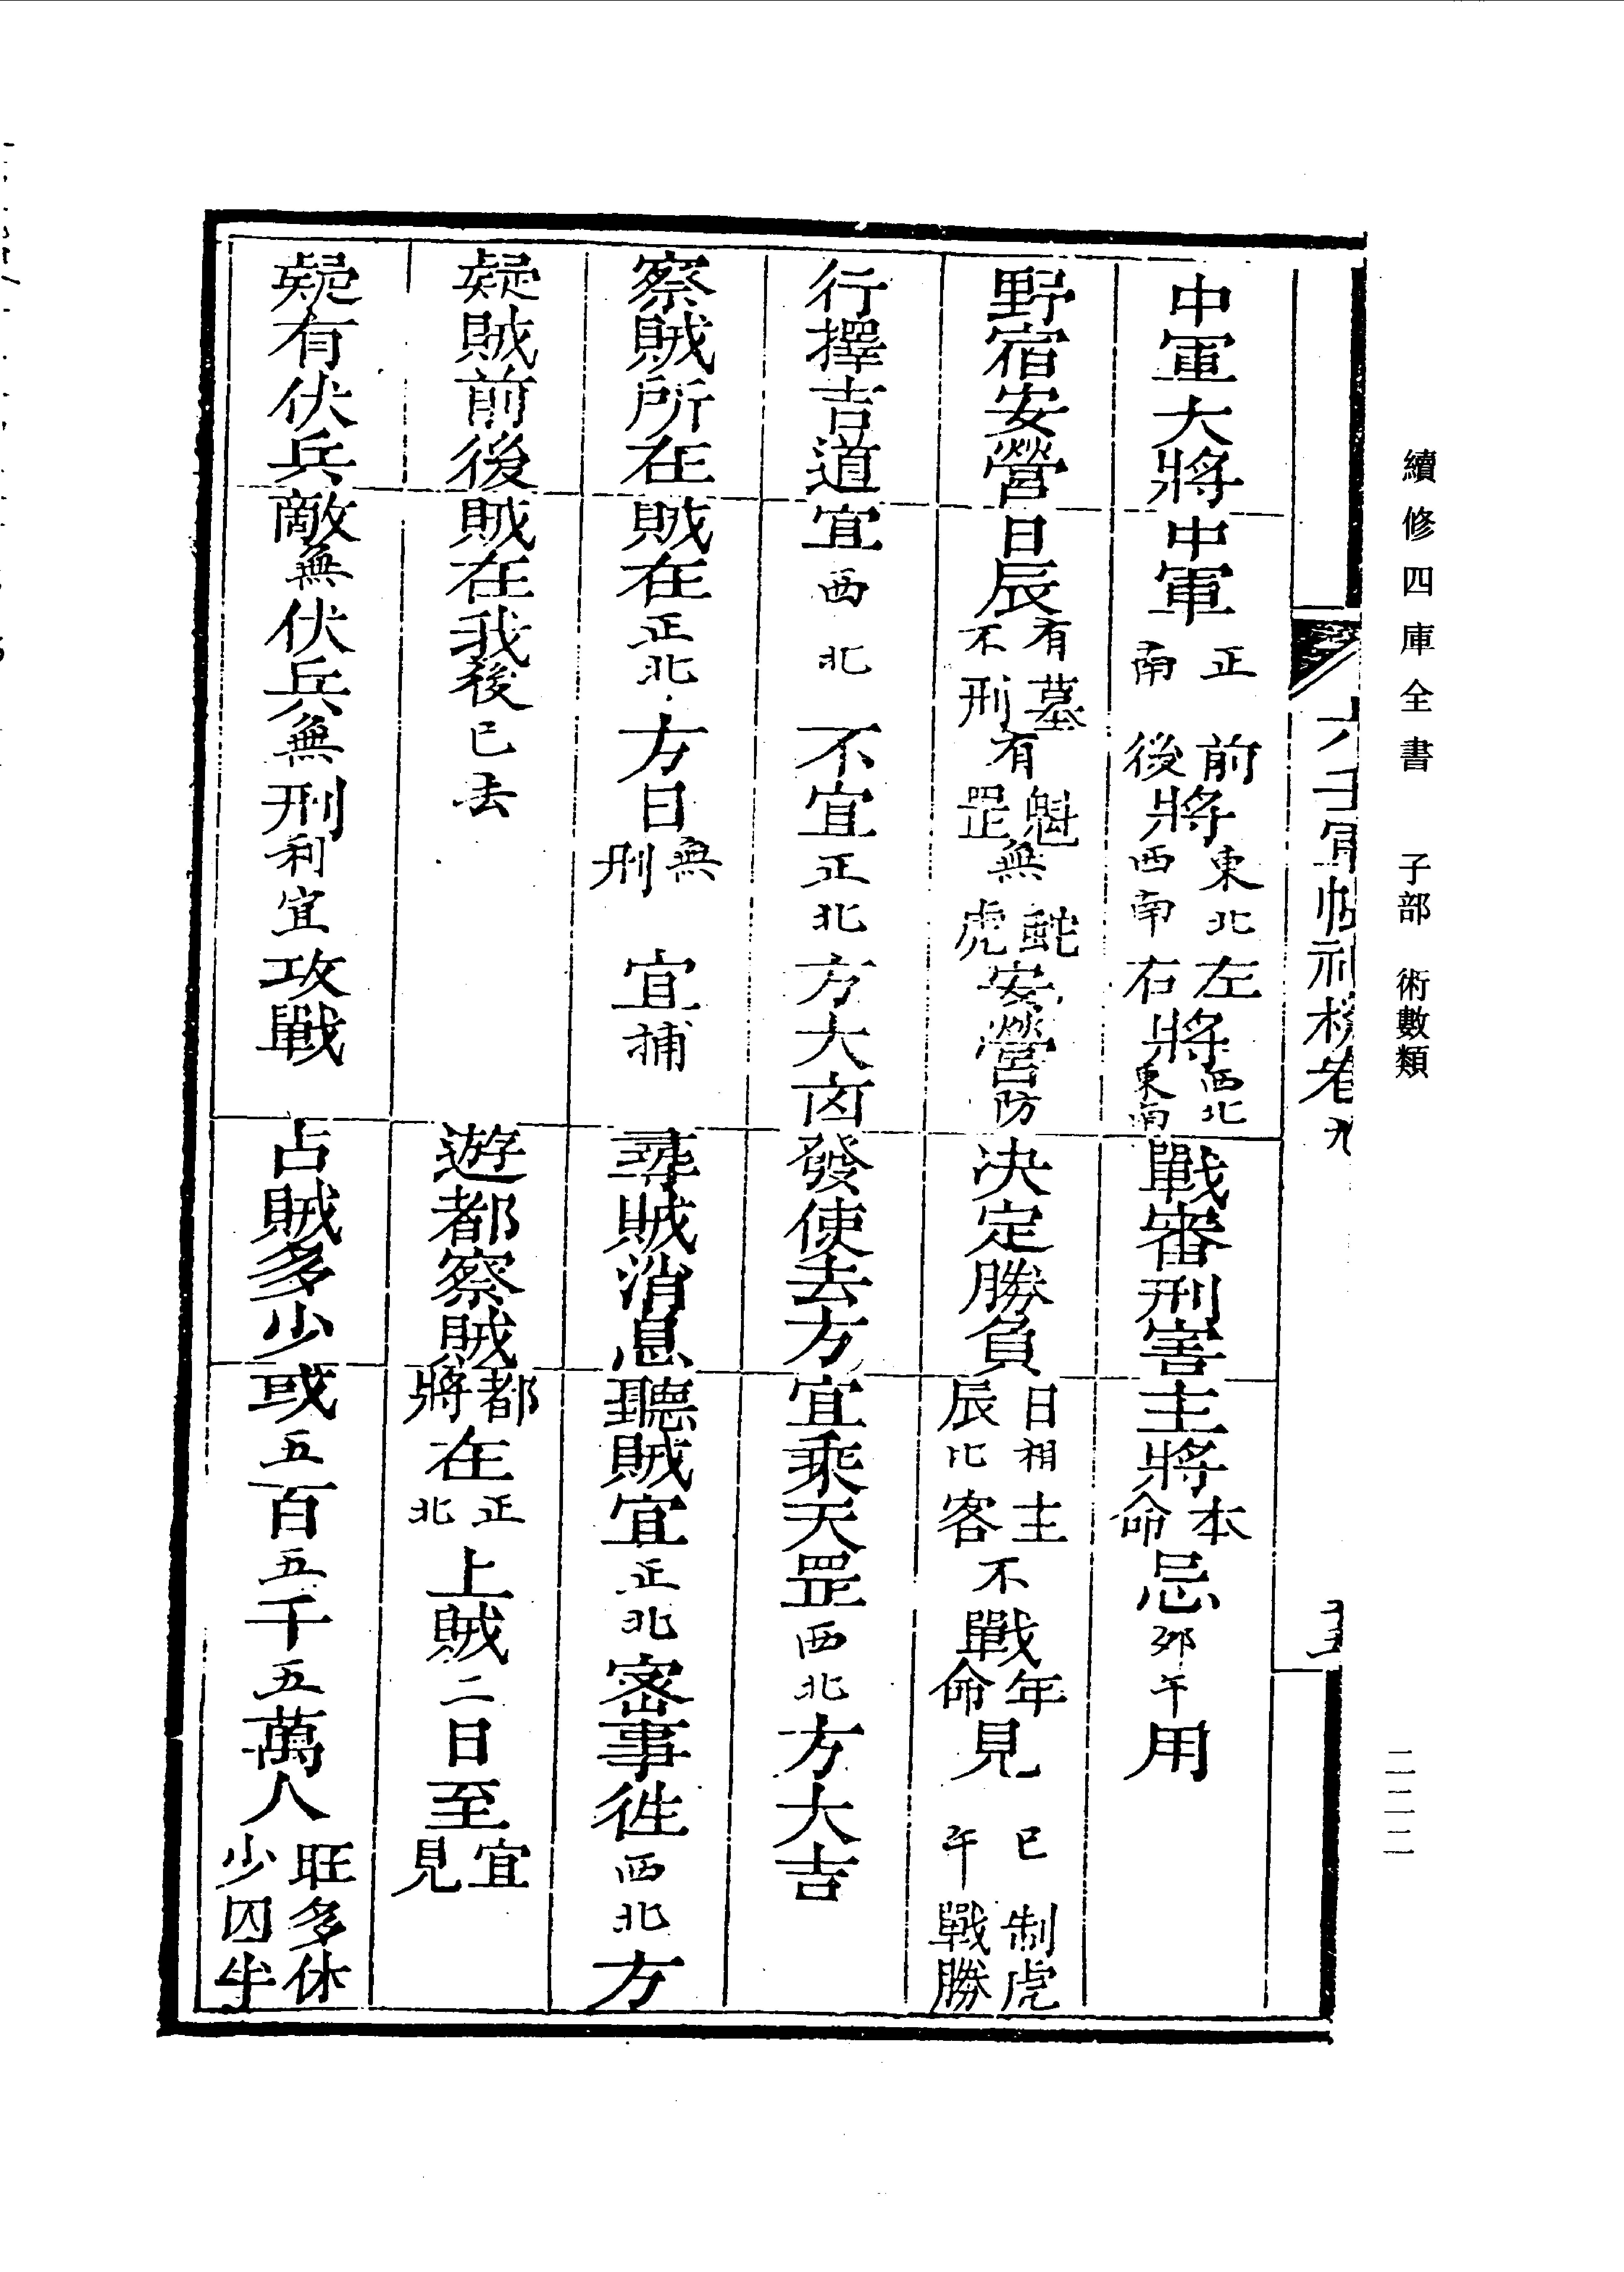 續修四庫全書　子部　術數類
二二二
中軍大將　中軍正南　前後將東北西南　左右將西北東南　戰審刑害　主將本命忌卯午用
野宿安營　日辰有不墓刑有魁罡無蛇虎安營防　決定勝負　日辰相比主客不戰年命見巳午制虎戰勝
行擇吉道　宜西北不宜正北方大凶　發使去方　宜乘天罡西北方大吉
察賊所在　賊在正北方日無刑宜捕　尋賊消息　聽賊宜正北密事徃西北方
疑賊前後　賊在我後已去　遊都察賊　都將在正北上賊二日至宜見
疑有伏兵　敵無伏兵無刑利宜攻戰　占賊多少　或五百五千五萬人旺多休少囚半